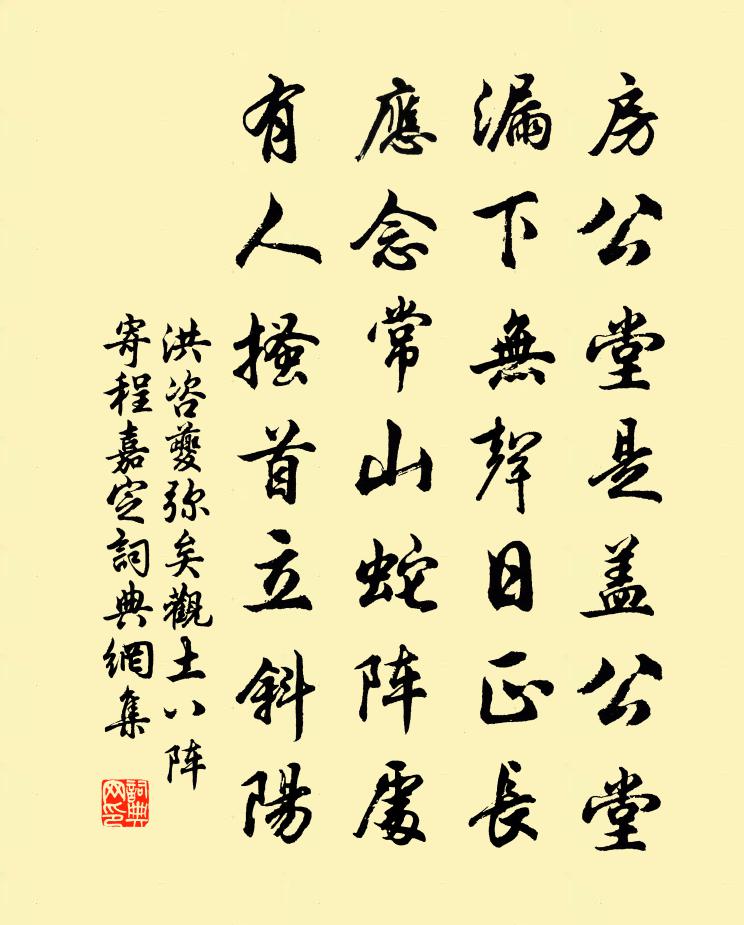 房公堂是盖公堂
漏下無聲日正長
應念常山蛇阵處
有人搔首立斜陽
洪咨夔弥矣觀土八阵
寄程嘉定詞典網集
詞典网印